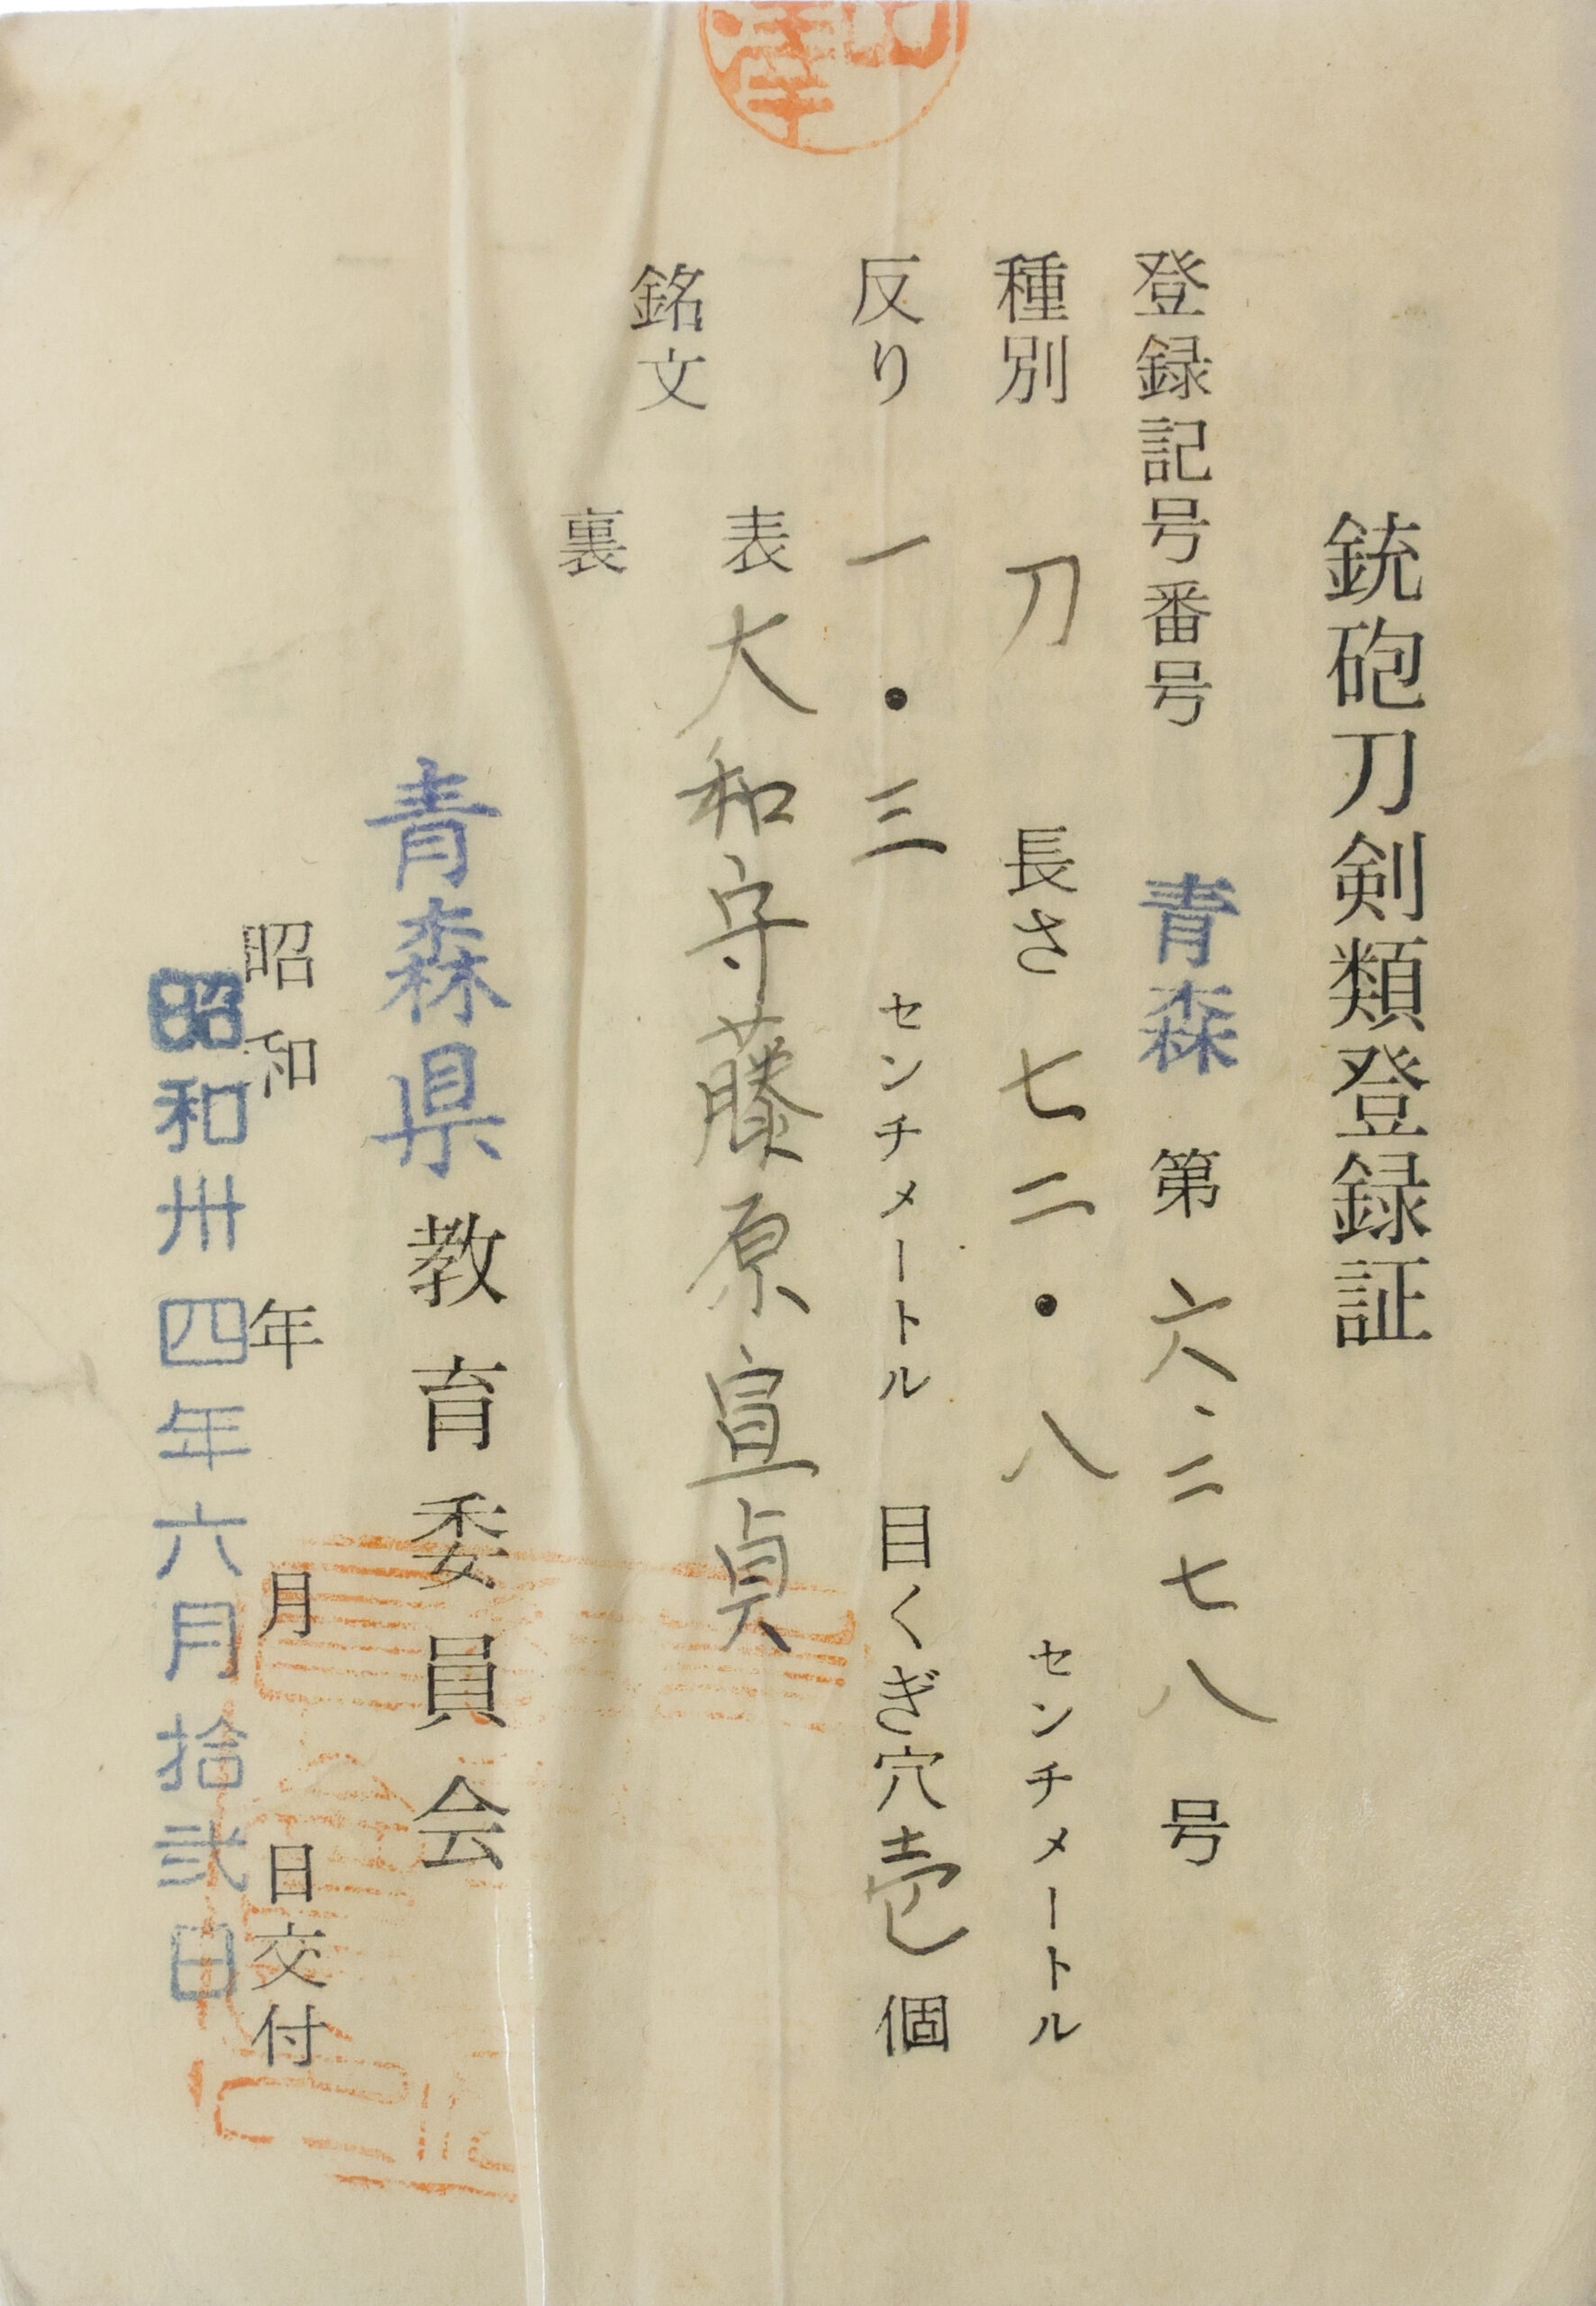 銃砲刀剣類登録証
登録記号番号 青森 第 六、二七八 号
種別 刀 長さ 七二・八 センチメートル
反り 一・三 センチメートル 目くぎ穴 壱 個
銘文 表 大和守藤原宣貞
裏
青森県教育委員会
昭和 年 月 日交付
昭和卅四年六月拾弐日